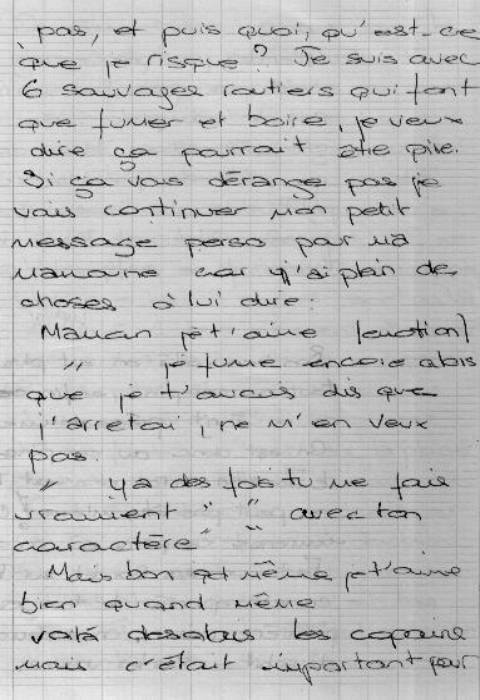 pas, et puis quoi, qu'est-ce
que je risque ? Je suis avec
6 sauvages routiers qui font
que fumer et boire, je veux
dire ça pourrait être pire.
Si ça vous dérange pas je
vais continuer mon petit
message perso pour ma
maman car j'ai plein de
choses à lui dire :
Maman je t'aime (emotion)
" je fume encore alors
que je t'avais dis que
j'arretai, ne m'en veux
pas.
" ya des fois tu me fais
vraiment " " avec ton
caractère "
Mais bon même je t'aime
bien quand même
voilà les copains
mais c'était important pour